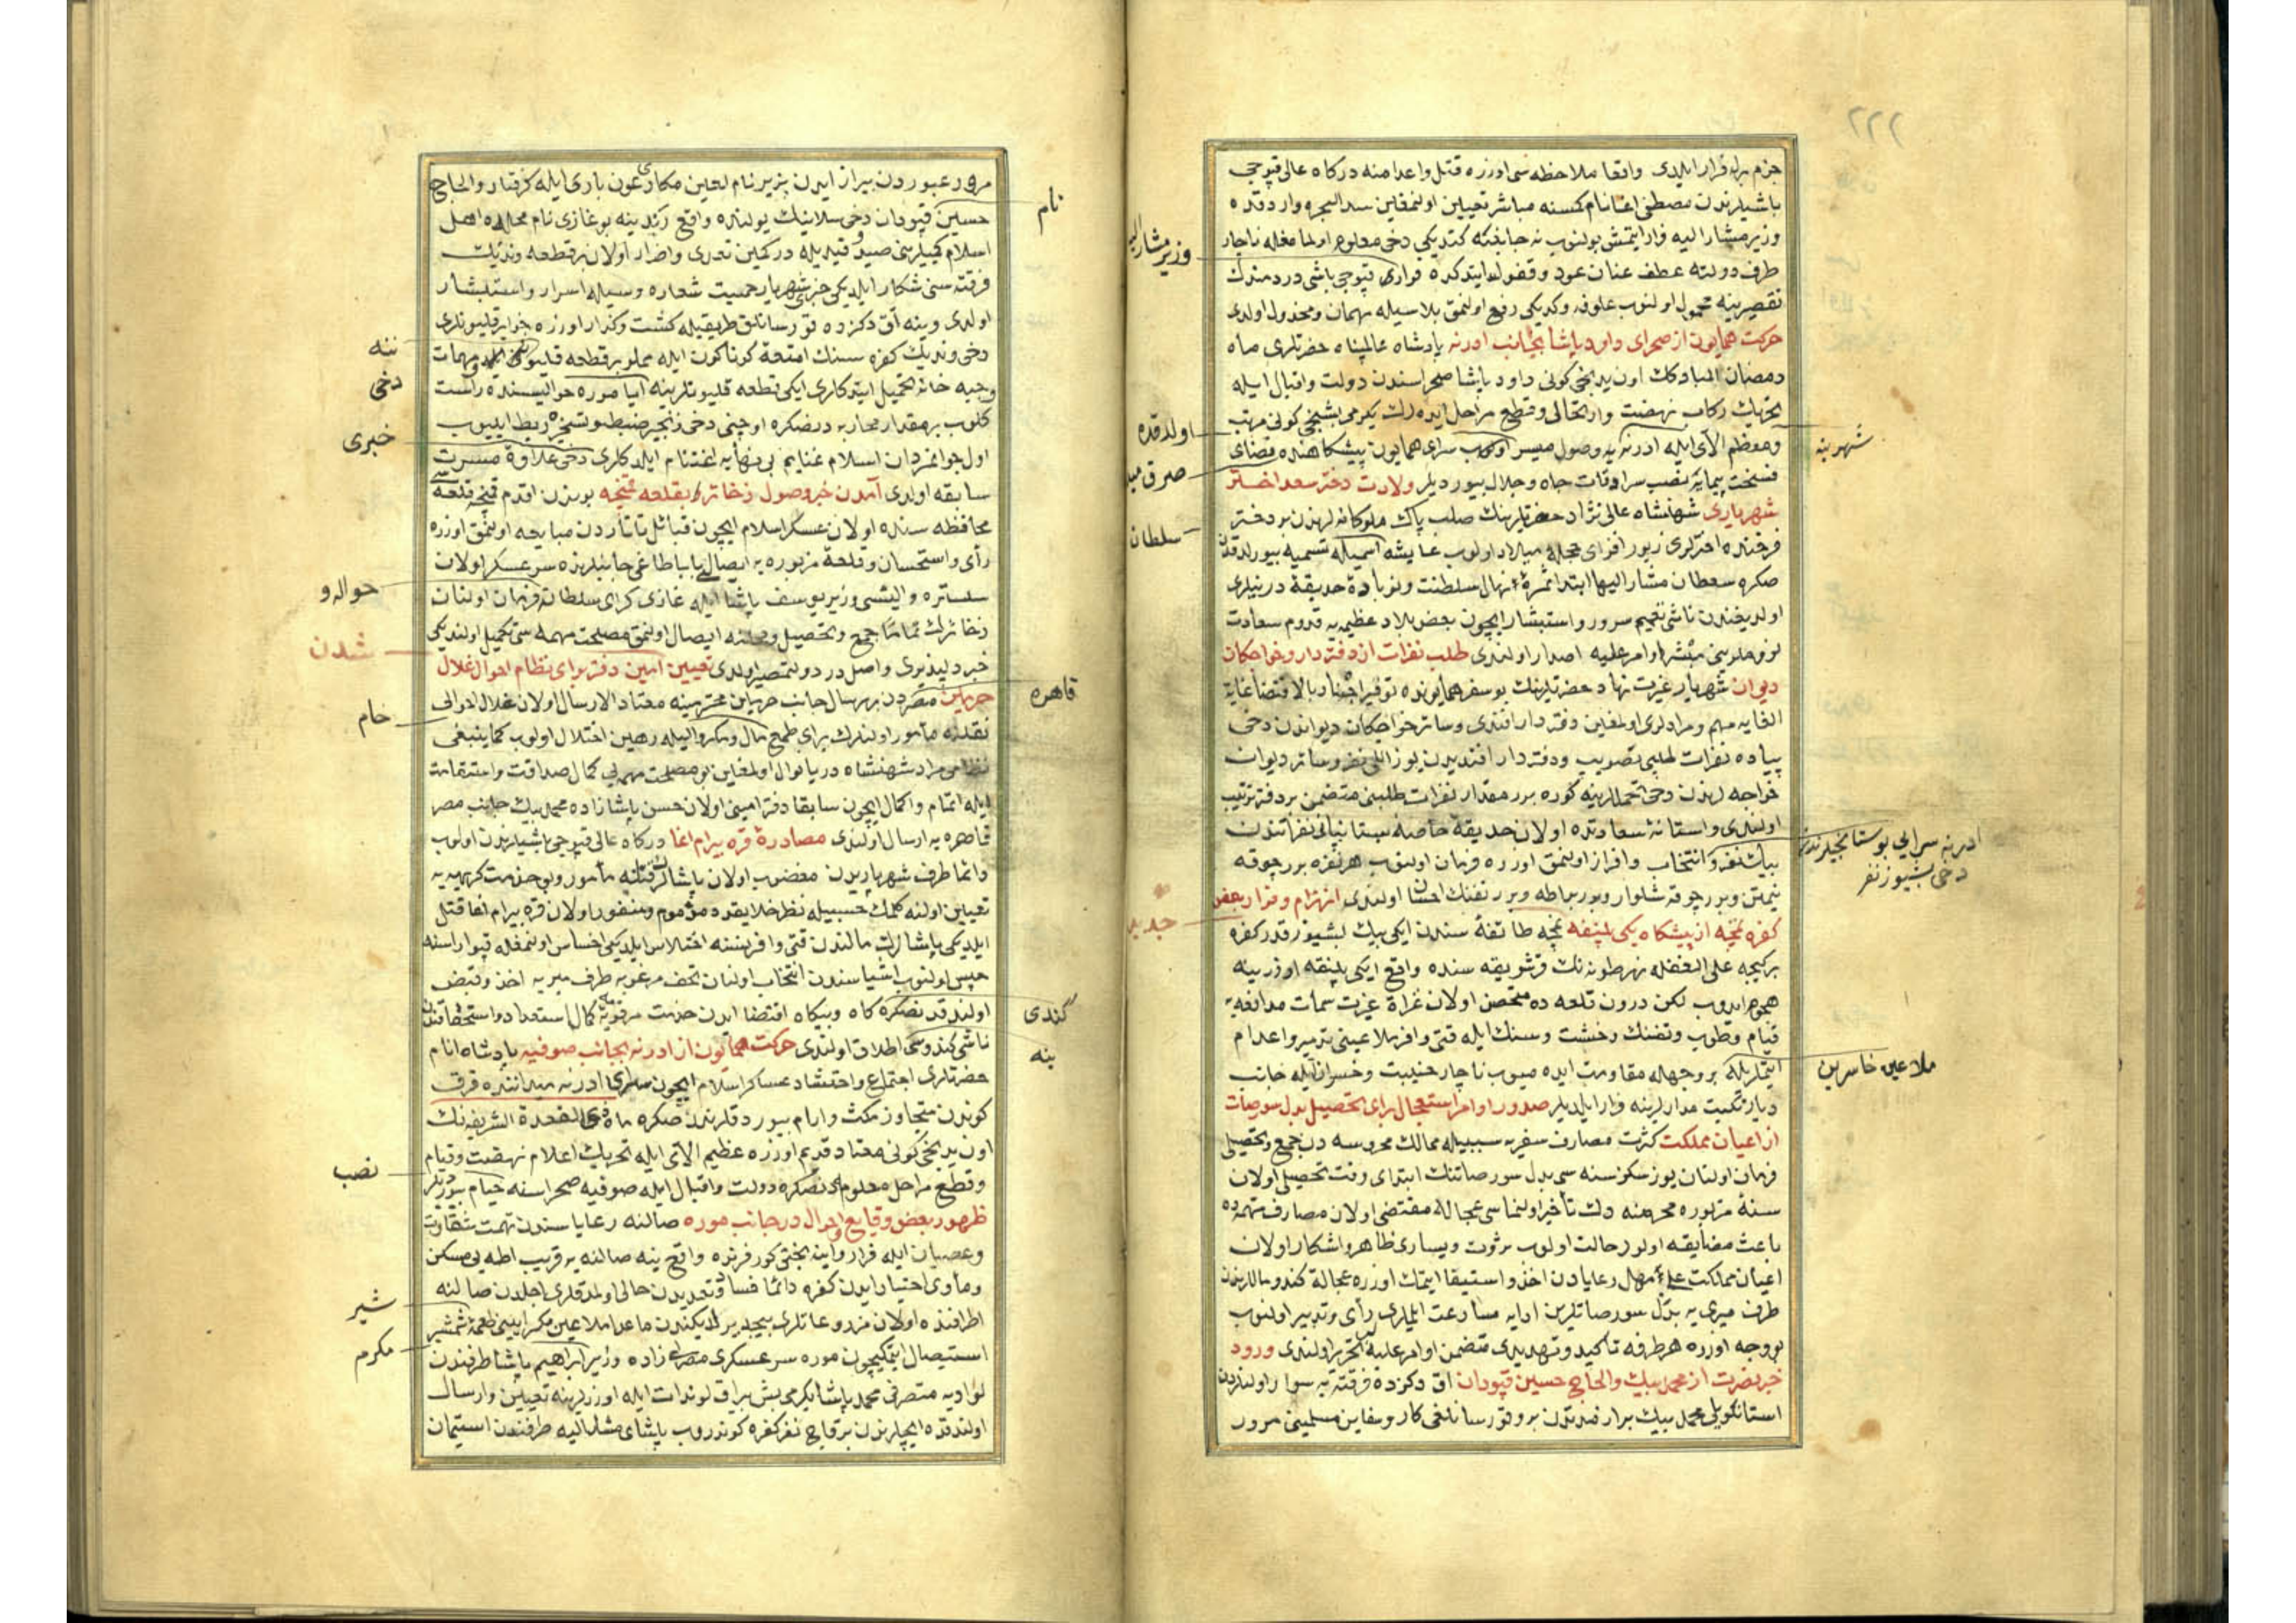 ٢٢٢
جزم برله قرار ایلدی واقعا ملاحظه سی اوزره قتل واعدامنه درکاه عالی قپوجی
باشیلرندن مصطفی اغا نام کمسنه مباشر تعیین اولنمغین سد البحره وارد قده
وزیر مشار الیه فرار ایتمش بولنوب نه جانبه کتدیکی دخی معلوم اولمامغله ناچار
طرف دولته عطف عنان عود وقفول ایتدکده فراری قپوجی باشی دردمندك
تقصیرینه محمول اولنوب علوفه وکدیکی رفع اولنمق بلاسیله مهمان ومخذول اولدی
حرکت همایون از صحرای داود پاشا بجانب ادرنه پادشاه عالمپناه حضرتلری ماه
رمضان المبارکك اون یدنجی کونی داود پاشا صحراسندن دولت واقبال ایله
تحریك رکاب نهضت وارتحال وقطع مراحل ایدهرك یکرمی بشنجی کونی مرتب
ومعظم الای ایله ادرنه یه وصول میسر اولوب سرای همایون پیشکاهنده فضای
فسحت پیمایه نصب سرادقات جاه وجلال بیوردیلر ولادت دختر سعد اختر
شهریاری شهنشاه عالی نژاد حضرتلرینك صلب پاك ملوکانه لرندن بو دختر
فرخنده اخترلری زیور افزای حجله میلاد اولوب عایشه اسمیله تسمیه بیورلدقدن
صکره سلطان مشار الیها ابتدا ثمره نهال سلطنت ونوباوه حدیقه درینلری
اولدیغندن ناشی تعمیم سرور واستبشار ایچون بعض بلاد عظیمه یه قدوم سعادت
لزوملرینی مبشر اوامر علیه اصدار اولندی طلب نفرات از دفتردار وخواجکان
دیوان شهریار غیرت نهاد حضرتلرینك بو سفر همایونده توفیر اجناد بالاقتضا غایة
الغایه مهم ومرادلری اولمغین دفتردار افندی وسائر خواجکان دیواندن دخی
پیاده نفرات طلبی تصویب ودفتردار افندیدن یوز اللی نفر وسائر دیوان
خواجه لرندن دخی تحمللرینه کوره برر مقدار نفرات طلبنی متضمن بر دفتر ترتیب
اولندی واستانۀ سعادتده اولان حدیقۀ خاصه بستانیانی نفراتندن
بیك نفر انتخاب وافراز اولنمق اوزره فرمان اولنوب هر نفره برر چوقه
نیمتن وبرر چوقه شلوار وبرر براطه وبرر تفنك احسان اولندی انهزام وفرار بعض
کفره نمچه از پیشکاه یکی پلنقه نمچه طائفه سندن ایکی بیك بشیوز قدر کفره
بر کیجه علی الغفله نهر طونه نك قرشو یقه سنده واقع ایکی پلنقه اوزرینه
هجوم ایدوب لکن درون قلعه ده متحصن اولان غزاة غیرت سمات مدافعه یه
قیام وطوب وتفنك وخشت وسنك ایله قتی وافر ملاعینی تدمیر واعدام
ایتملریله بر وجهله مقاومت ایده میوب ناچار خیبت وخسران ایله جانب
دیار نکبت مدارلرینه فرار ایلدیلر صدور اوامر استعجال برای تحصیل بدل سورصات
از اعیان مملکت کثرت مصارف سفریه سببیله ممالك محروسه دن جمع وتحصیلی
فرمان اولنان یوز سکز سنه سی بدل سورصاتنك ابتدای وقت تحصیلی اولان
سنۀ مزبوره محرمنه دك تأخیر اولنماسی عجالة مقتضی اولان مصارف مهمه ده
باعث مضایقه اولور حالت اولوب ثروت ویساری ظاهر واشکار اولان
اعیان مملکت علی مهل رعایادن اخذ واستیفا ایتمك اوزره عجالة کندو ماللرندن
طرف میری یه بدل سورصاتلرین ادایه مسارعت ایلملری رأی وتدبیر اولنوب
بو وجه اوزره هر طرفه تأکید وتهدیدی متضمن اوامر علیه تحریر اولندی ورود
خبر نصرت از محمد بیك والحاج حسین قپودان اق دکزده فرقته یه سوار اولنلردن
استانکویلی محمد بیك برادرندن بروقورسانلغی کار وسفاین مسلمینی مرور
وزیر مشار الیه
اولدقده
صرق میدا
سلطان
جدید
شهرینه
ادرنه سرایی بوستانجیلرندن
دخی بشیوز نفر
ملاعین خاسرین
مرور عبوردن بیزار ایدن پنیر نام لعین مکاری عون باری ایله کرفتار والحاج
حسین قپودان دخی سلانیك یولنده واقع رندینه بوغازی نام محلده اهل
اسلام کمیلرینی صید وقیدیله در کمین تعدی واضرار اولان بر قطعه وندیك
فرقته سنی شکار ایلدیکی خبری شهریار حمیت شعاره وسیله اسرار واستبشار
اولدی وینه اق دکزده قورسانلق طریقیله کشت وکذار اوزره جزایر قلیونلری
دخی وندیك کفره سنك امتعة کوناکون ایله مملو بر قطعه قلیونی الوب ومهمات
وجبه خانه تحمیل ایتدکلری ایکی قطعه قلیونلرینه ایا موره حوالیسنده راست
کلوب بر مقدار محاربه دنصکره اوچنی دخی زنجیر ضبط وتسخیره ربط ایلیوب
اول جوانمردان اسلام غنایم بی نهایه اغتنام ایلدکلری دخی علاوۀ مسرت
سابقه اولدی آمدن خبر وصول ذخائر بقلعه قمنچه بوندن اقدم قمنچه قلعه سی
محافظه سنده اولان عسکر اسلام ایچون قبائل تاتاردن مبایعه اولنمق اوزره
رأی واستحسان وقلعۀ مزبوره یه ایصالی بابا طاغی جانبلرنده سرعسکر اولان
سلستره والیسی وزیر یوسف پاشا ایله غازی کرای سلطانه فرمان اولنان
ذخائرك تماما جمع وتحصیل ومحلنه ایصال اولنمق مصلحت مهمه سی تکمیل اولندیکی
خبر دلپذیری واصل در دولتمصیر اولدی تعیین امین دفتر برای نظام احوال غلال
حرمین مصردن بهر سال جانب حرمین محترمینه معتاد الارسال اولان غلال اهالی
نقلنه مأمور اولنلرك برای طمع مال ومکر والیله رهین اختلال اولوب کما ینبغی
نظامی مراد شهنشاه دریا نوال اولمغین بو مصلحت مهمه یی کمال صداقت واستقامت
ایله اتمام واکمال ایچون سابقا دفتر امینی اولان حسن پاشا زاده محمد بیك جانب مصر
قاهره یه ارسال اولندی مصادرۀ قره بیرام اغا درکاه عالی قپوجی باشیلرندن اولوب
دائما طرف شهریاریدن مغضوب اولان پاشالرك قتلنه مأمور وبو خدمت کریهه یه
تعیین اولنه کلمك حسبیله نظر خلایقده مذموم ومنفور اولان قره بیرام اغا قتل
ایلدیکی پاشالرك مالندن قتی وافر نسنه اختلاس ایلدیکی احساس اولنمغله قپو اراسنه
حبس اولنوب اشیاسندن انتخاب اولنان تحف مرغوبه طرف میریه اخذ وقبض
اولندقدنصکره کاه وبیکاه اقتضا ایدن خدمت مرقومه یه کمال استعداد واستحقاقندن
ناشی کندوسی اطلاق اولندی حرکت همایون از ادرنه بجانب صوفیه پادشاه انام
حضرتلری اجتماع واحتشاد عساکر اسلام ایچون سرای ادرنه میداننده قرق
کوندن متجاوز مکث وارام بیوردقلرندن صکره ماه ذی القعدة الشریفه نك
اون یدنجی کونی معتاد قدیم اوزره عظیم الای ایله تحریك اعلام نهضت وقیام
وقطع مراحل معلومه دنصکره دولت واقبال ایله صوفیه صحراسنه خیام بیوردیلر
ظهور بعض وقایع احوال در جانب موره صالنه رعایاسندن تهمت شقاوت
وعصیان ایله فرار واینه بختی کورفزنده واقع ینه صالنه یه قریب اطه یی مسکن
ومأوی اختیار ایدن کفره دائما فساد وتعدیدن خالی اولمدقلری اجلدن صالنه
اطرافنده اولان مزروعاتلری بیچدیرلدیکندن ماعدا ملاعین مکر ایینی طعمۀ شمشیر
استیصال ایتمکیچون موره سرعسکری مصرلی زاده وزیر ابراهیم پاشا طرفندن
لواویه متصرفی محمد پاشا یکرمی بش بیراق لوندات ایله اوزرلرینه تعیین وارسال
اولندقده ایچلرندن بر قاچ نفر کفره کوندروب پاشای مشار الیه طرفندن استیمان
نام
قاهره
کندی
ینه
ینه
دخی
خبری
حواله و
شدن
خام
نصب
شیر
مکرم